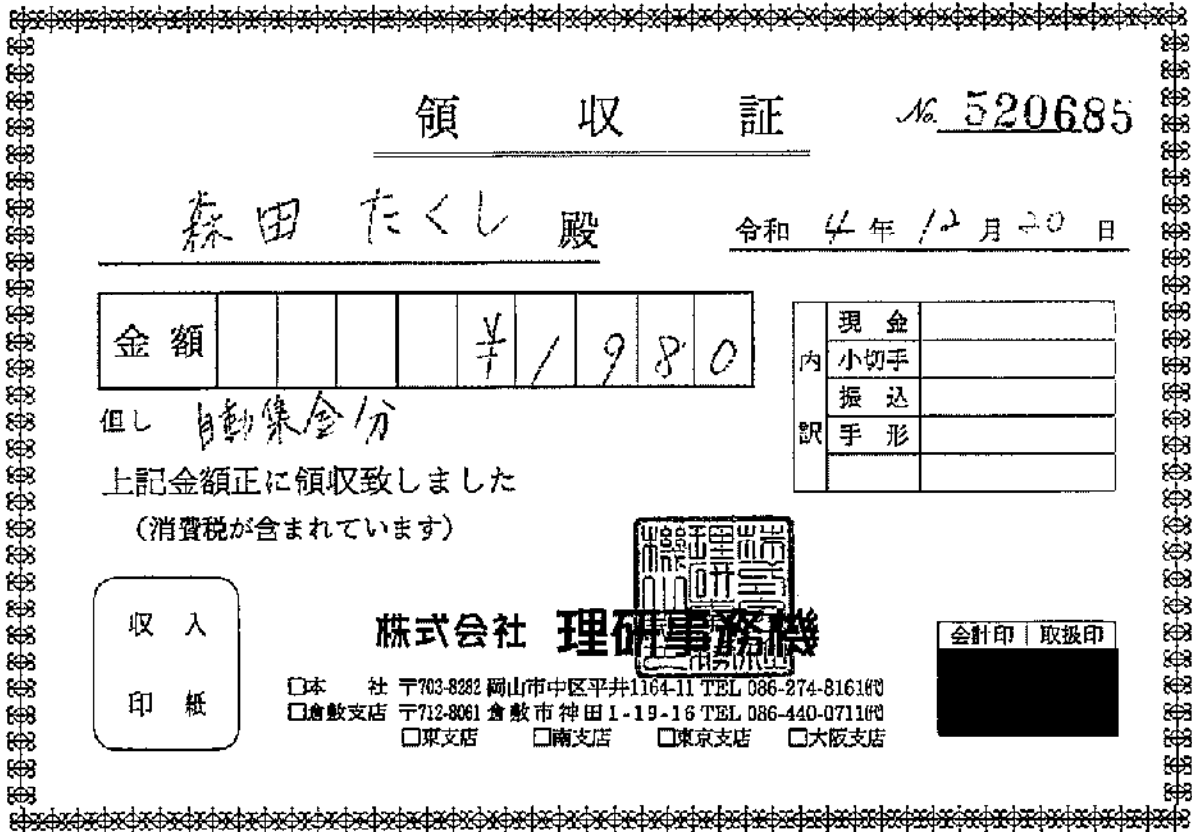 領収証
No. 520685
森田 たくし 殿
令和 4年 12月 20日
金額 ¥1980
内訳
現金
小切手
振込
手形
但し 自動集金分
上記金額正に領収致しました
(消費税が含まれています)
収入
印紙
株式会社 理研事務機
□本 社 〒703-8282 岡山市中区平井1164-11 TEL 086-274-8161㈹
□倉敷支店 〒712-8061 倉敷市神田1-19-16 TEL 086-440-0711㈹
□東支店 □南支店 □東京支店 □大阪支店
会計印 取扱印